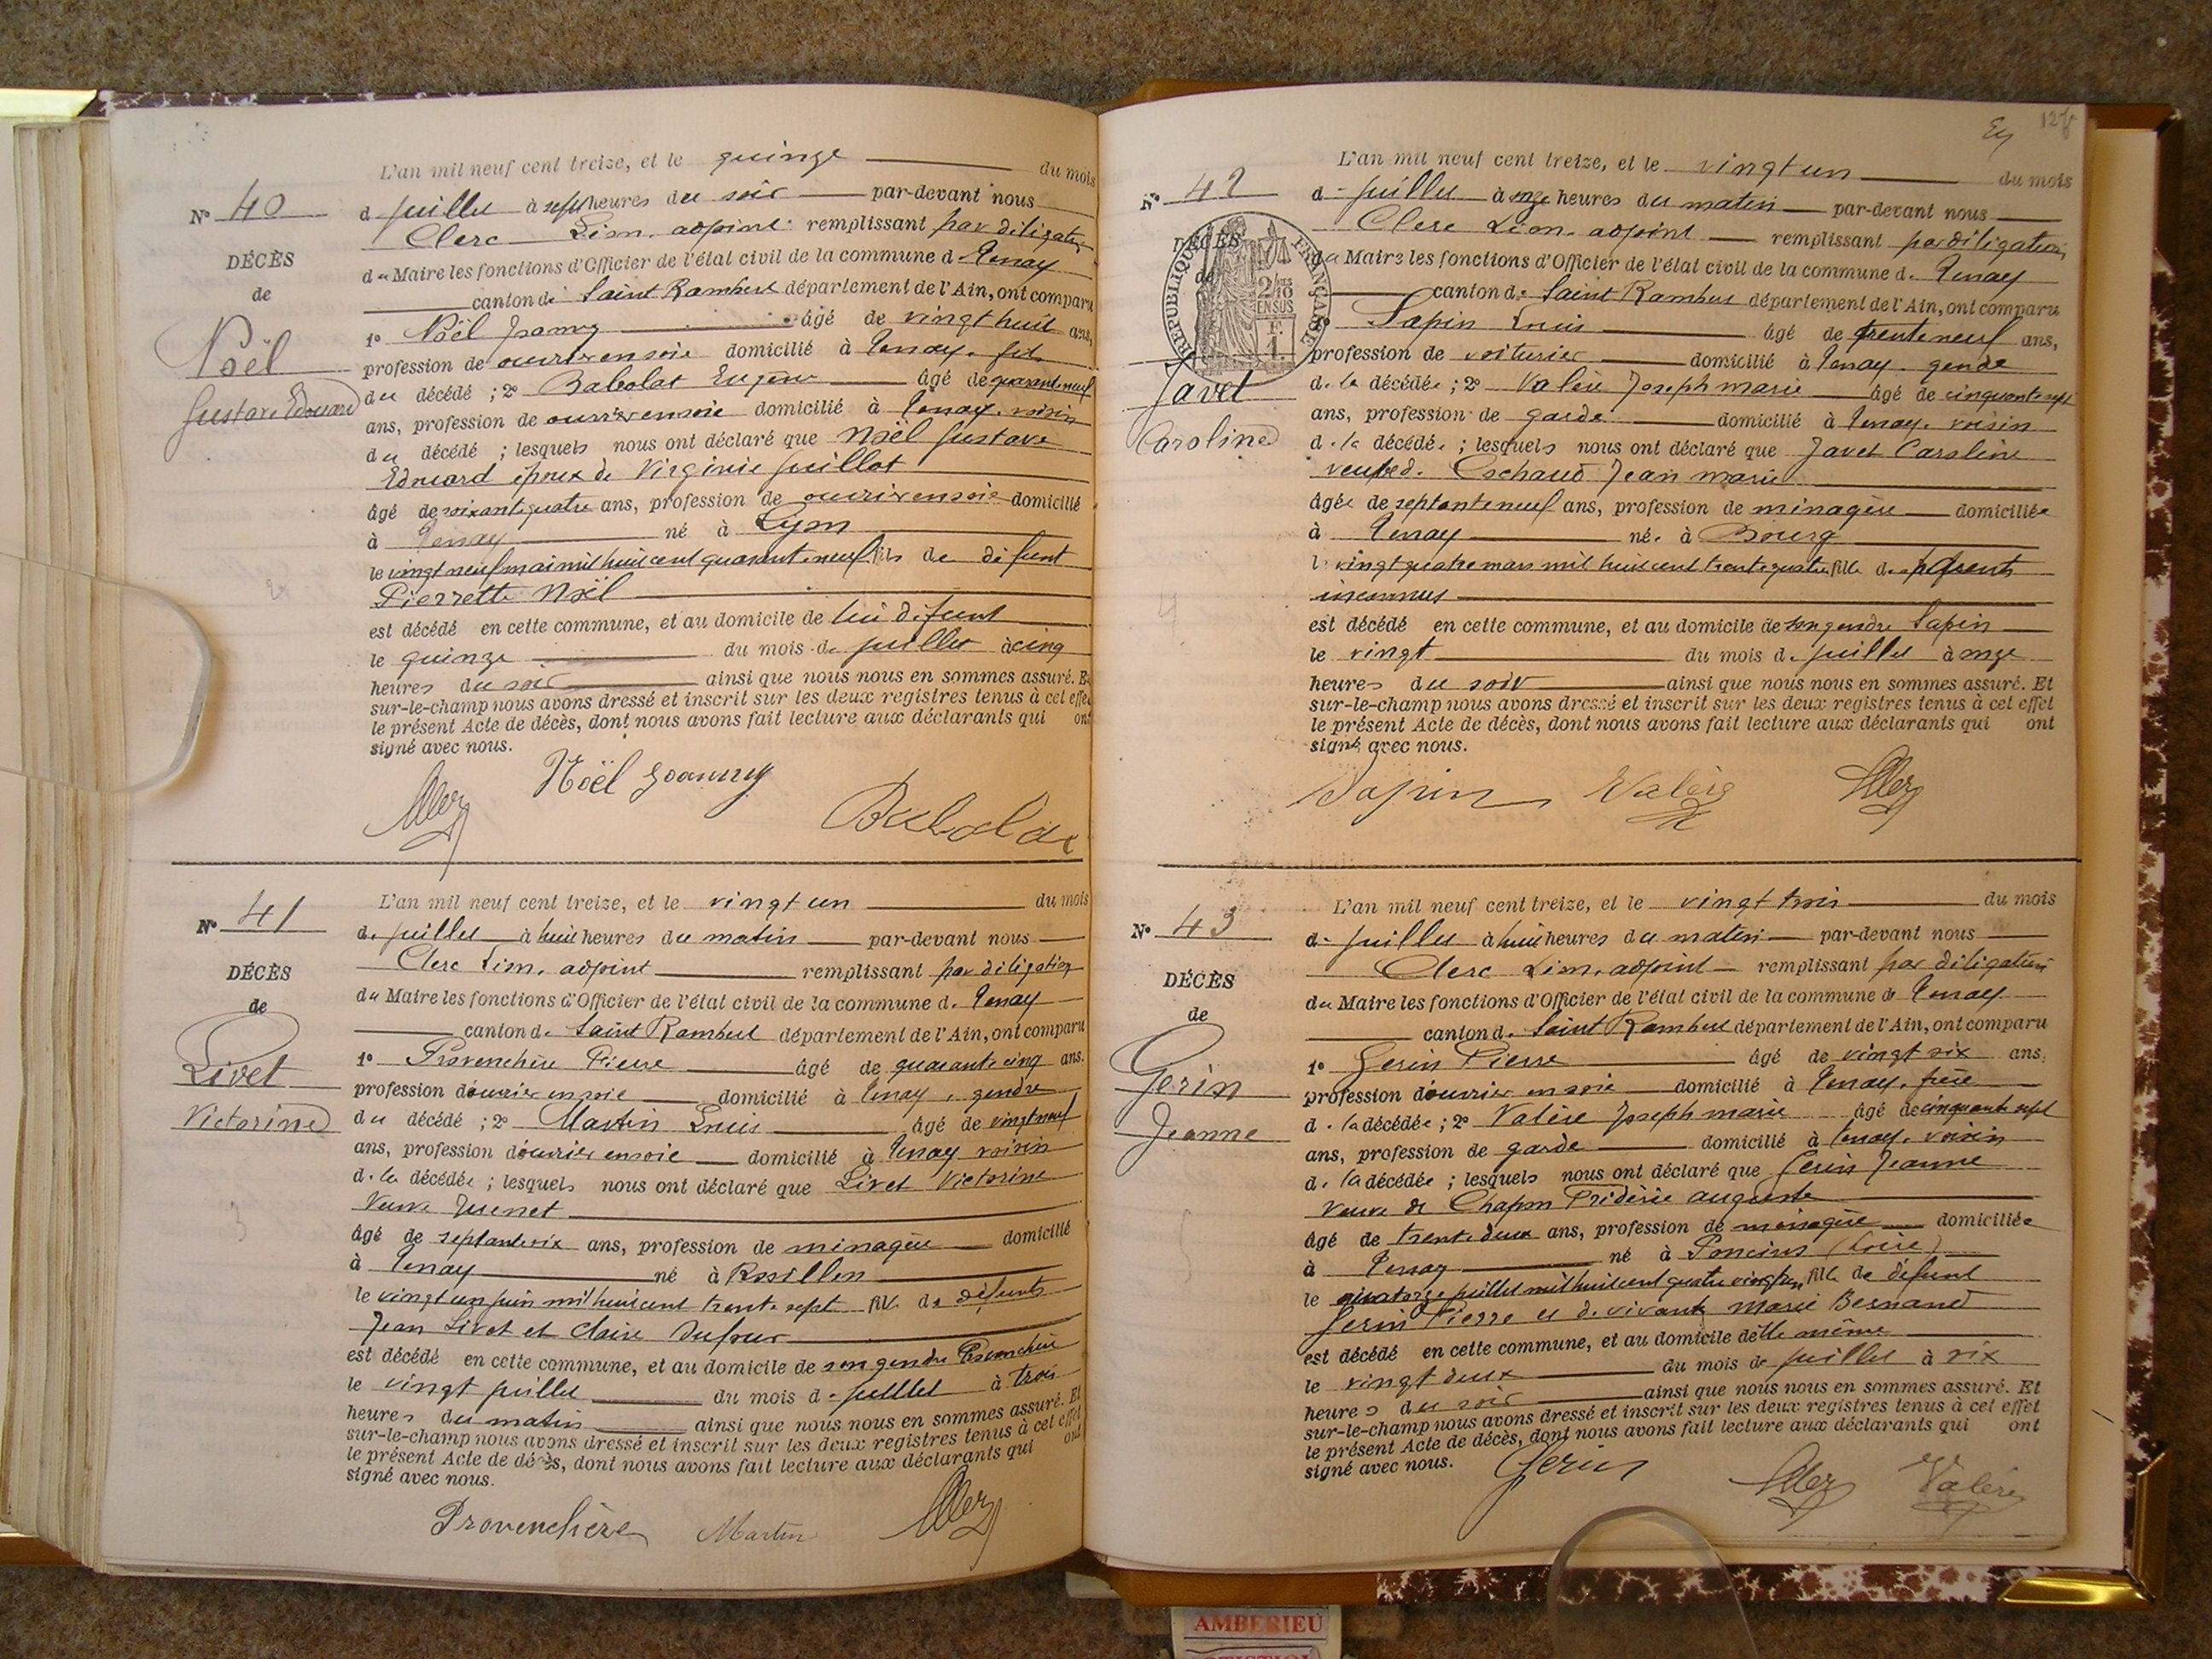 L'an mil neuf cent treize, et le quinze du mois
Nº 40
d. juillet à sept heures du soir par-devant nous
Clerc Léon, adjoint remplissant par délégation
DÉCÈS
du Maire les fonctions d'Officier de l'état civil de la commune d. Tenay
de
canton de Saint Rambert département de l'Ain, ont comparu
1º Noël Joanny âgé de vingt huit ans,
Noël
profession de ouvrier en soie domicilié à Tenay, fils
Gustave Edouard
du décédé ; 2º Babolat Eugène âgé de quarante neuf
ans, profession de ouvrier en soie domicilié à Tenay, voisin
du décédé ; lesquels nous ont déclaré que Noël Gustave
Edouard époux de Virginie Juillat
âgé de soixante quatre ans, profession de ouvrier en soie domicilié
à Tenay né à Lyon
le vingt neuf mai mil huit cent quarante neuf fils de défunt
Pierrette Noël
est décédé en cette commune, et au domicile de lui défunt
le quinze du mois de juillet à cinq
heures du soir ainsi que nous nous en sommes assuré. Et
sur-le-champ nous avons dressé et inscrit sur les deux registres tenus à cet effet
le présent Acte de décès, dont nous avons fait lecture aux déclarants qui ont
signé avec nous.
Noël Joanny
Babolat
L'an mil neuf cent treize, et le vingt un du mois
Nº 41
d. juillet à huit heures du matin par-devant nous
Clerc Léon, adjoint remplissant par délégation
DÉCÈS
du Maire les fonctions d'Officier de l'état civil de la commune d. Tenay
de
canton d. Saint Rambert département de l'Ain, ont comparu
1º Provenchère Pierre âgé de quarante cinq ans.
Livet
profession d'ouvrier en soie domicilié à Tenay, gendre
Victorine
du décédé ; 2º Martin Louis âgé de vingt neuf
ans, profession d'ouvrier en soie domicilié à Tenay voisin
d. la décédée ; lesquels nous ont déclaré que Livet Victorine
Veuve
âgé de septante six ans, profession de ménagère domicilié
à Tenay né à Rossillon
le vingt un juin mil huit cent trente sept fille de défunts
Jean Livet et Claire Dufour
est décédé en cette commune, et au domicile de son gendre Provenchère
le vingt juillet du mois d. juillet à trois
heures du matin ainsi que nous nous en sommes assuré. Et
sur-le-champ nous avons dressé et inscrit sur les deux registres tenus à cet effet
le présent Acte de décès, dont nous avons fait lecture aux déclarants qui ont
signé avec nous.
Provenchère Martin
L'an mil neuf cent treize, et le vingt un du mois
Nº 42
d. juillet à onze heures du matin par-devant nous
Clerc Léon, adjoint remplissant par délégation
DÉCÈS
du Maire les fonctions d'Officier de l'état civil de la commune d. Tenay
de
RÉPUBLIQUE FRANÇAISE
2/10
EN SUS
canton d. Saint Rambert département de l'Ain, ont comparu
1º Sapin Louis âgé de trente neuf ans,
profession de voiturier domicilié à Tenay, gendre
Javet
d. la décédée ; 2º Valère Joseph marie âgé de cinquante sept
Caroline
ans, profession de garde domicilié à Tenay, voisin
d. la décédée ; lesquels nous ont déclaré que Javet Caroline
veuve d. Cochaud Jean marie
âgée de septante neuf ans, profession de ménagère domiciliée
à Tenay née à Bourg
le vingt quatre mars mil huit cent trente quatre fille de parents
inconnus
est décédé en cette commune, et au domicile de son gendre Sapin
le vingt du mois d. juillet à onze
heures du soir ainsi que nous nous en sommes assuré. Et
sur-le-champ nous avons dressé et inscrit sur les deux registres tenus à cet effet
le présent Acte de décès, dont nous avons fait lecture aux déclarants qui ont
signé avec nous.
Sapin Valère
L'an mil neuf cent treize, et le vingt trois du mois
Nº 43
d. juillet à huit heures du matin par-devant nous
Clerc Léon, adjoint remplissant par délégation
DÉCÈS
du Maire les fonctions d'Officier de l'état civil de la commune de Tenay
de
canton d. Saint Rambert département de l'Ain, ont comparu
1º Gerin Pierre âgé de vingt six ans,
Gerin
profession d'ouvrier en soie domicilié à Tenay, frère
Jeanne
d. la décédée ; 2º Valère Joseph marie âgé de cinquante sept
ans, profession de garde domicilié à Tenay, voisin
d. la décédée ; lesquels nous ont déclaré que Gerin Jeanne
veuve de Chapon Frédéric auguste
âgé de trente deux ans, profession de ménagère domiciliée
à Tenay né à Poncins (Loire)
le quatorze juillet mil huit cent quatre vingt un, fille de défunt
Gerin Pierre et d. vivante Marie Bernand
est décédé en cette commune, et au domicile d'elle même
le vingt deux du mois de juillet à six
heures du soir ainsi que nous nous en sommes assuré. Et
sur-le-champ nous avons dressé et inscrit sur les deux registres tenus à cet effet
le présent Acte de décès, dont nous avons fait lecture aux déclarants qui ont
signé avec nous.
Gerin Valère
AMBERIEU